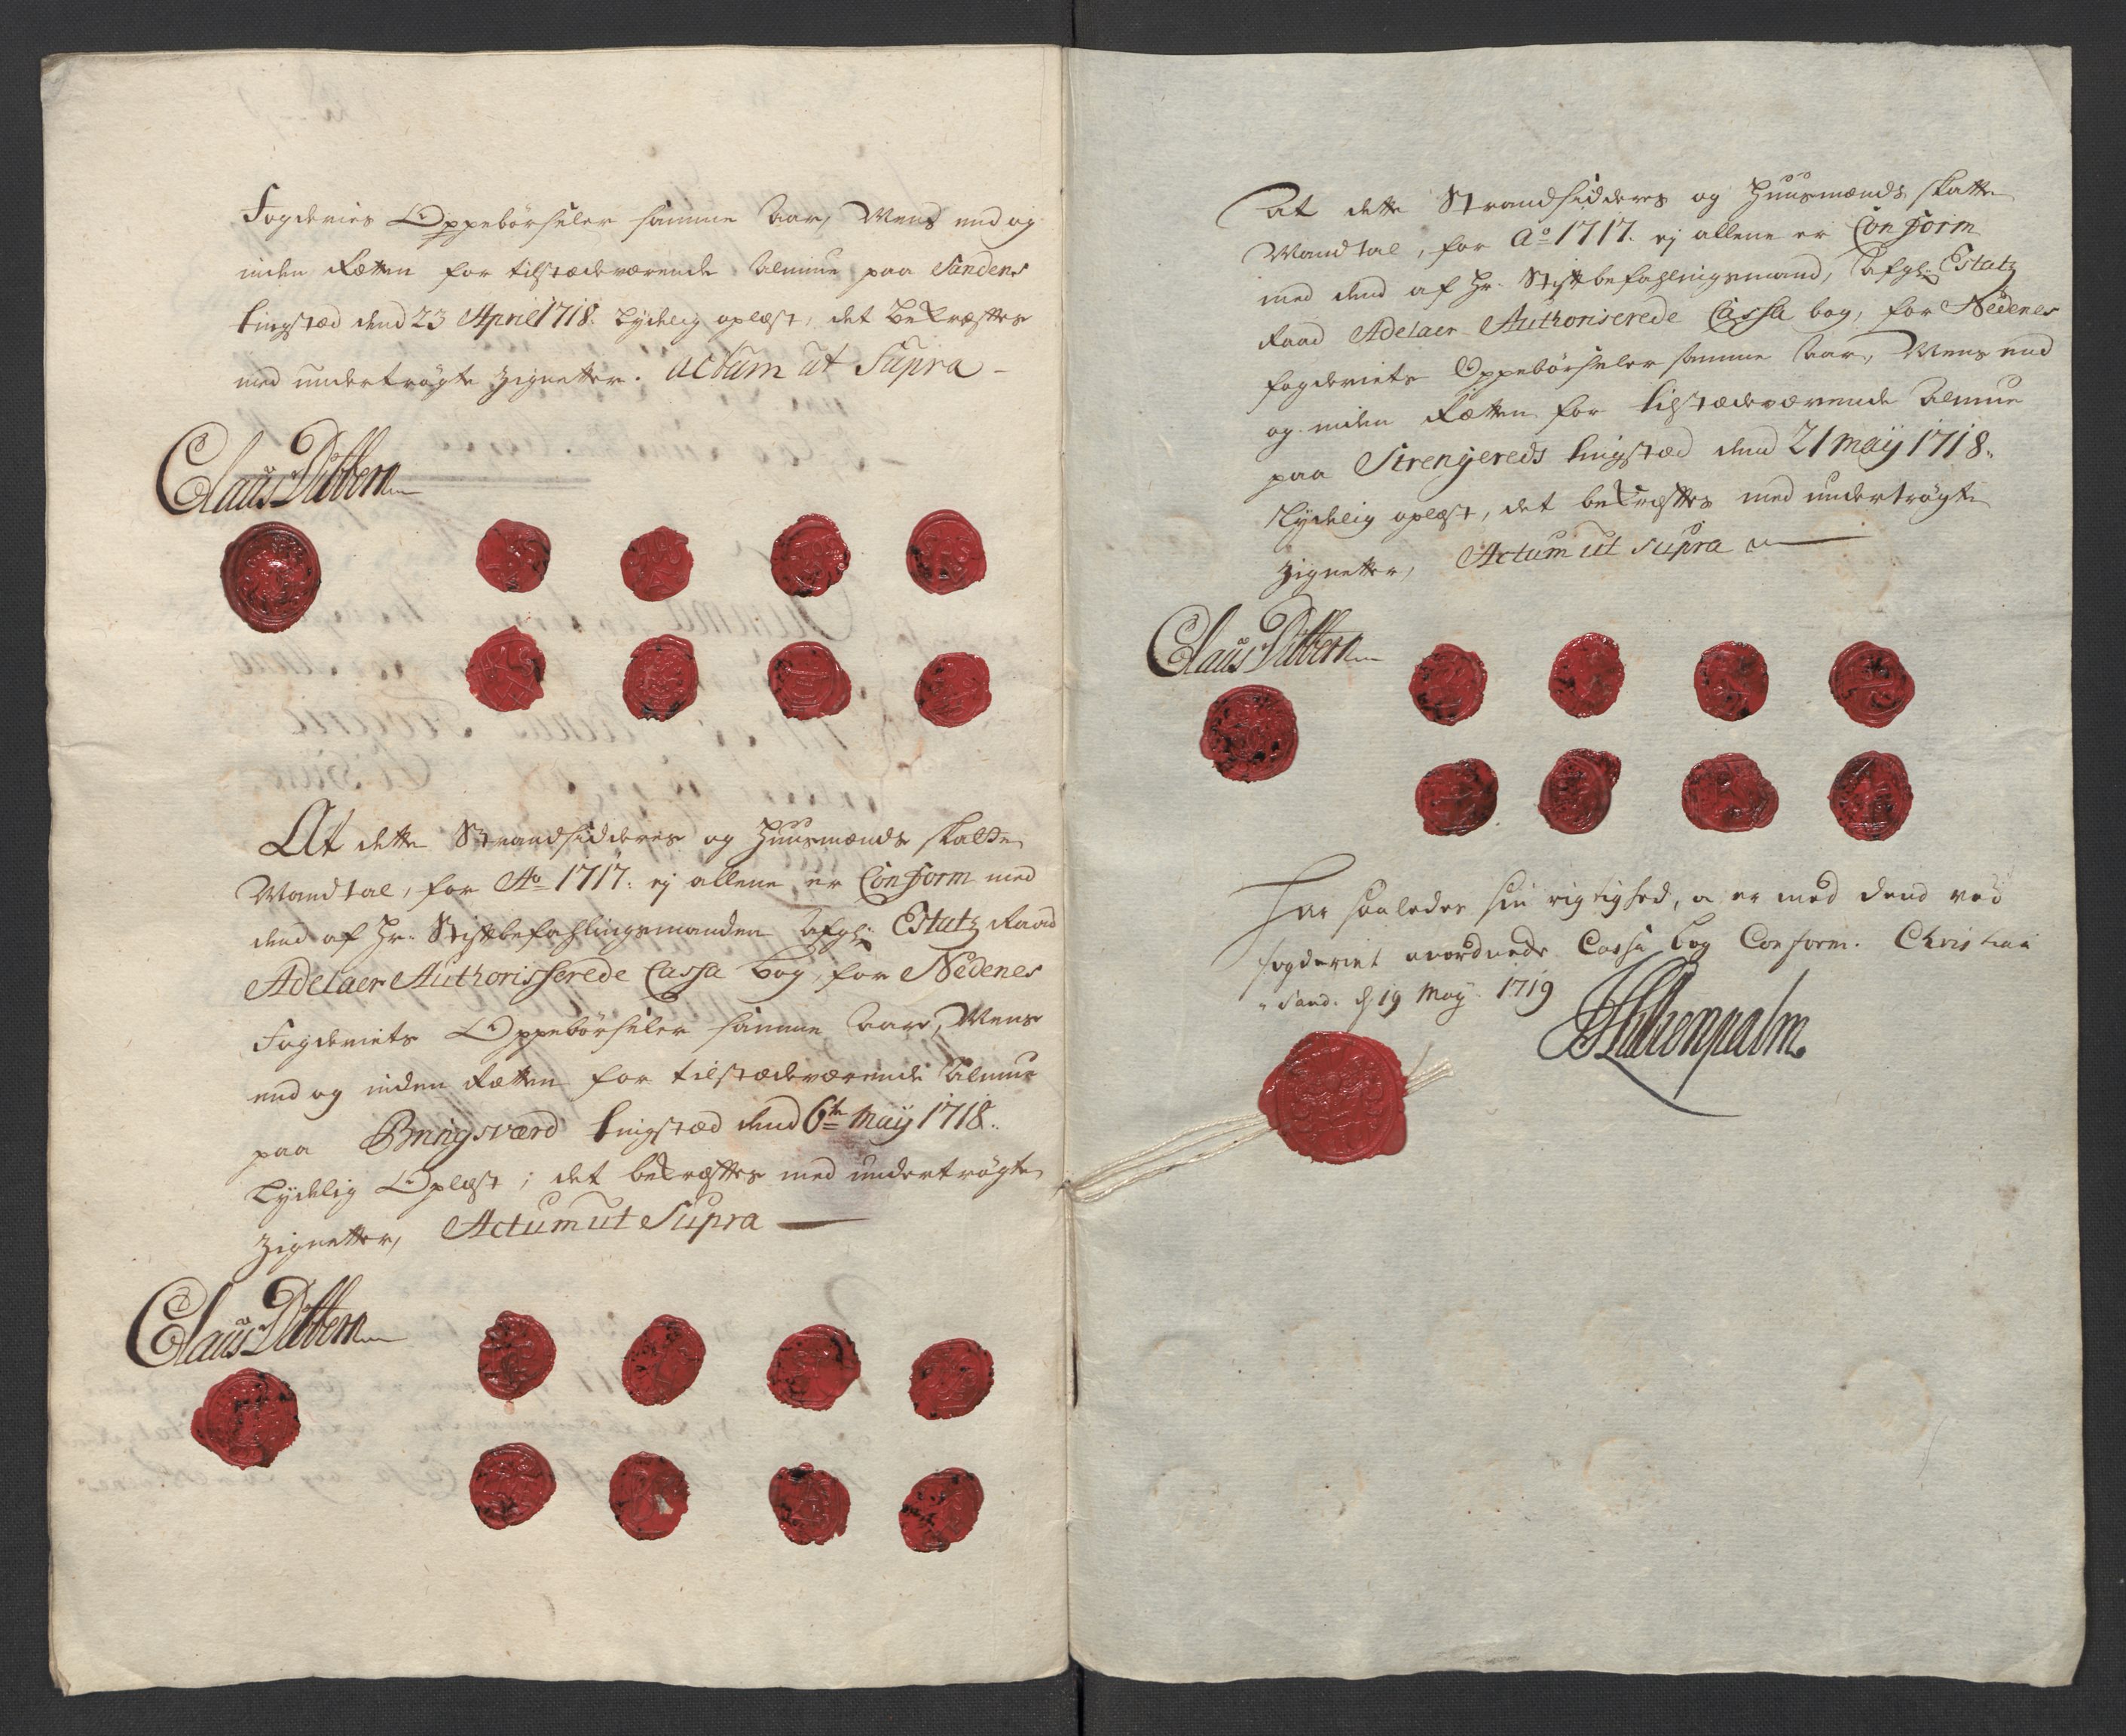 Fogderies Oppebörseler samme Aar, Mens end og
inden Rætten for tilstædeværende Almue paa Sandenes
tingstæd dend 23 April 1718. Lydelig oplæst, det Bekræfftes
med undertrögte Zignetter. Actum ut Supra
Claus Dibbern
At dette Strandsidderes og Huusmænds skatte
Mandtal, for Ao 1717. ej allene er Conform med
dend af Hr. Stiftbefahlingsmanden Afgl: Etatz Raad
Adelaer Authorisserede Cassa bog, for Nedenes
Fogderiets Oppebörseler samme Aar, Mens
end og inden Rætten for tilstædeværende Almue
paa Bringsværd tingstæd dend 6te Maÿ 1718.
Lÿdelig Oplæst; det bekræfftes med undertrögte
Zignetter, Actum ut Supra
Claus Dibbern
At dette Strandsidderes og Huusmænds skatte
Mandtal, for Ao 1717. ej allene er Conform
med dend af Hr. Stiftbefahlingsmand, Afgl: Etatz
Raad Adelaer Authoriserede Cassa bog, for Nedenes
fogderiets Oppebörseler samme Aar, Mens end
og inden Rætten for tilstædeværende Almue
paa Strengereds tingstæd dend 21 Maÿ 1718.
Lÿdelig oplæst, det bekræfftes med undertrögte
Zignetter, Actum ut supra
Claus Dibbern
Har saaledes sin rigtighed, og er med dend ved
fogderiet anordnede Cassa bog Conform. Christian
Sand. d. 19 Maÿ. 1719